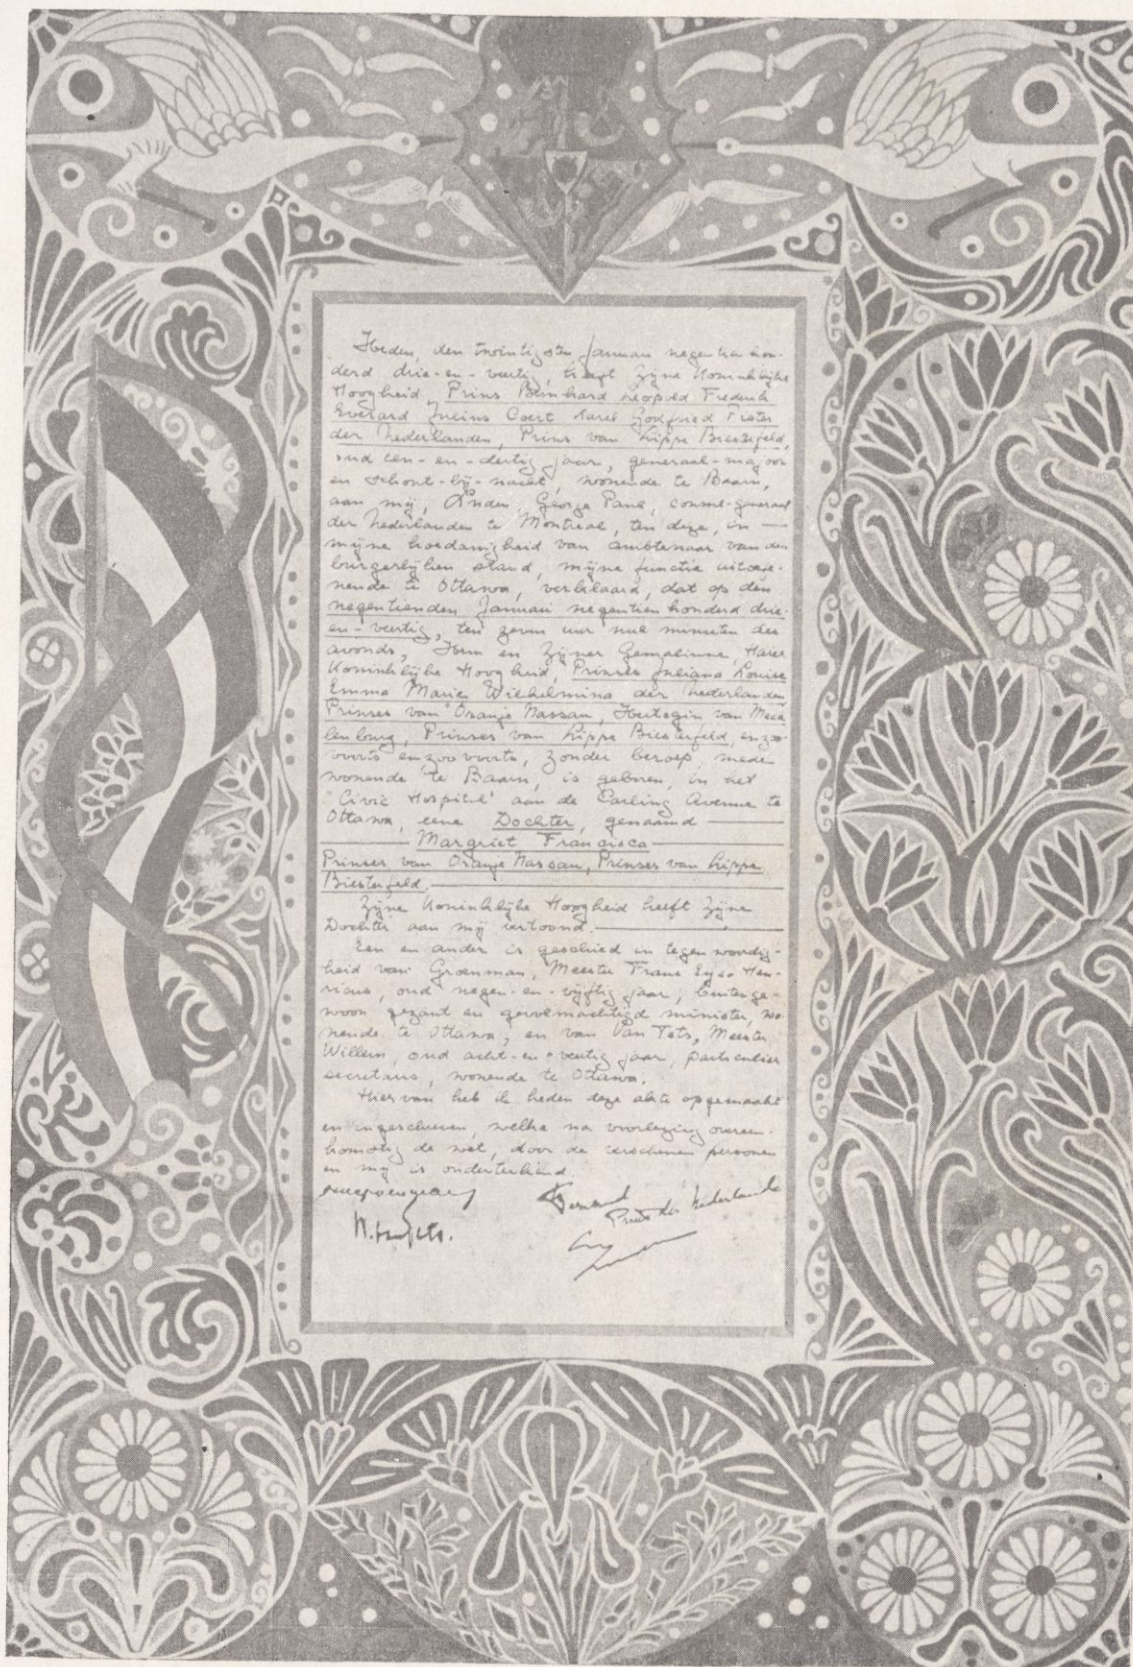 Heden, den twintigsten Januari negentien hon-
derd drie-en-veertig, heeft Zijne Koninklijke
Hoogheid Prins Bernhard Leopold Frederik
Everard Julius Coert Karel Godfried Pieter
der Nederlanden, Prins van Lippe Biesterfeld,
oud een-en-dertig jaar, generaal-majoor
en schout-bij-nacht, wonende te Baarn,
aan mij, George Paul, consul-generaal
der Nederlanden te Montreal, ten deze, in
mijne hoedanigheid van ambtenaar van den
burgerlijken stand, mijne functie uitoefe-
nende te Ottawa, verklaard, dat op den
negentienden Januari negentien honderd drie-
en-veertig, ten zeven uur nul minuten des
avonds, Hem en Zijner Gemalinne, Hare
Koninklijke Hoogheid, Prinses Juliana Louise
Emma Marie Wilhelmina der Nederlanden
Prinses van Oranje Nassau, Hertogin van Meck
lenburg, Prinses van Lippe Biesterfeld, enzoo-
voorts enzoovoorts, zonder beroep, mede
wonende te Baarn, is geboren, in het
"Civic Hospital" aan de Carling Avenue te
Ottawa, eene Dochter, genaamd
Margriet Francisca
Prinses van Oranje Nassau, Prinses van Lippe
Biesterfeld.
Zijne Koninklijke Hoogheid heeft Zijne
Dochter aan mij vertoond.
Een en ander is geschied in tegenwoordig-
heid van Groenman, Meester Frans Eyso Hen-
ricus, oud negen-en-vijftig jaar, buitenge-
woon gezant en gevolmachtigd minister, wo-
nende te Ottawa, en van Van Tets, Meester
Willem, oud acht-en-veertig jaar, particulier
secretaris, wonende te Ottawa.
Hiervan heb ik heden deze akte opgemaakt
en ingeschreven, welke na voorlezing overeen-
komstig de wet, door de verschenen personen
en mij is onderteekend.
Bernhard
Prins der Nederlanden